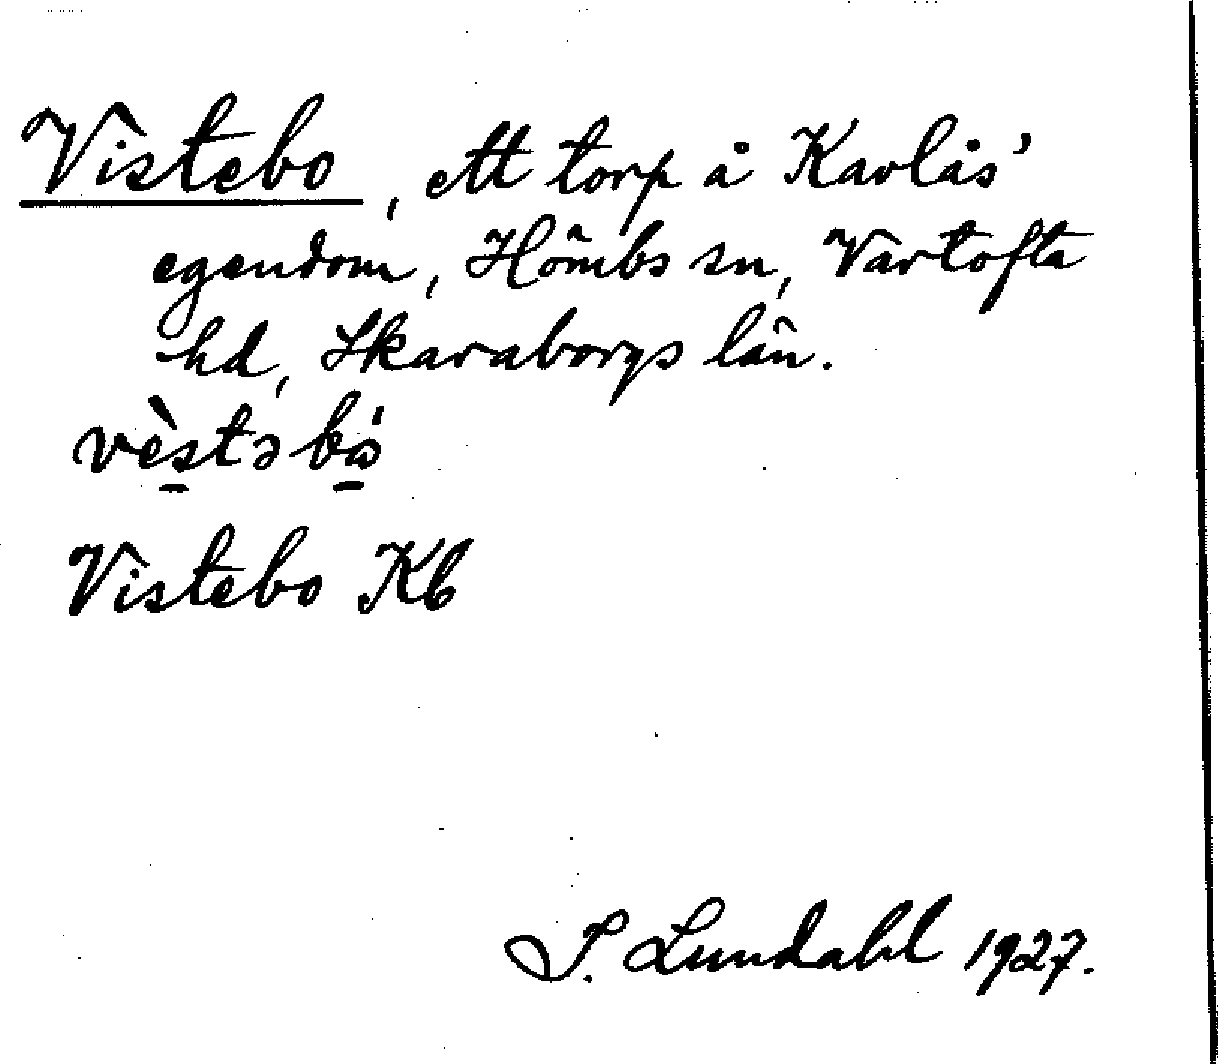 Vistebo, ett torp å Kavlås'
egendom, Hömbs sn, Vartofta
hd, Skaraborgs län.
vè̱stəbǻ̱
Vistebo Kb
I. Lundahl 1927.